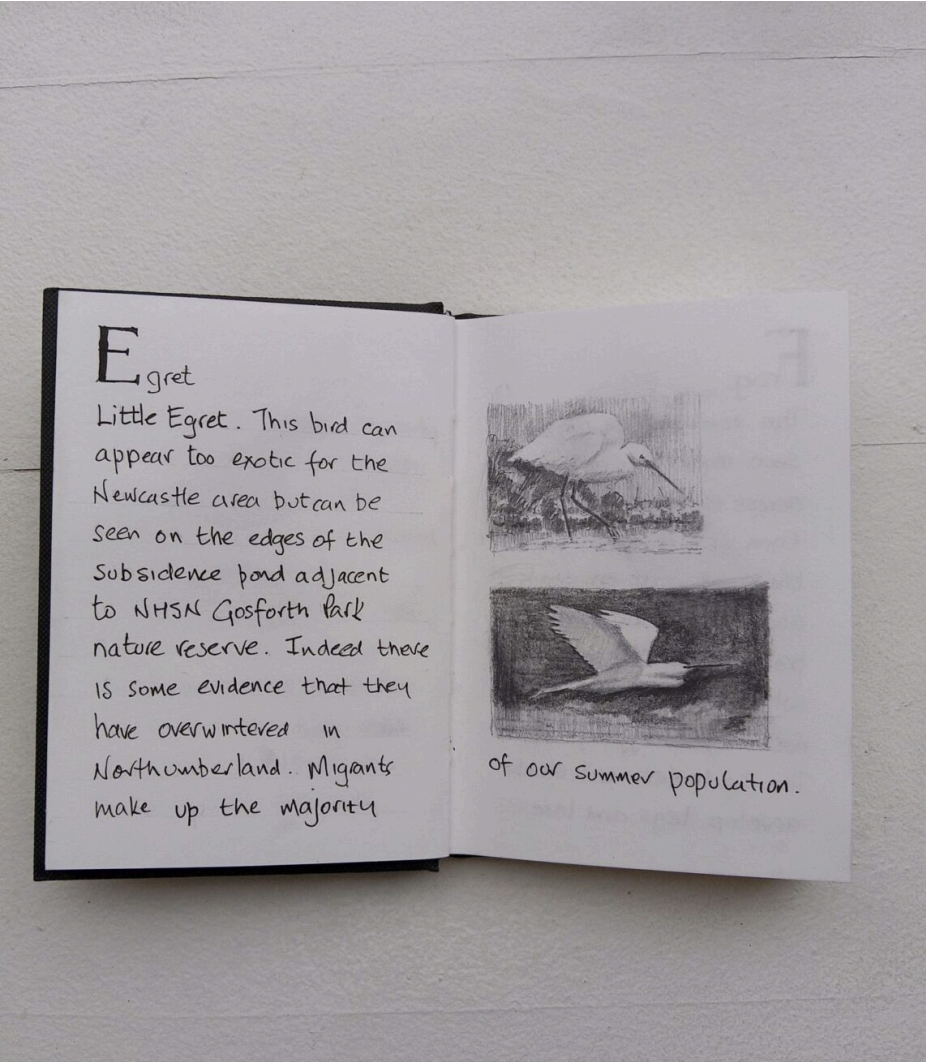 Egret
Little Egret. This bird can
appear too exotic for the
Newcastle area but can be
seen on the edges of the
Subsidence pond adjacent
to NHSN Gosforth Park
nature reserve. Indeed there
is some evidence that they
have overwintered in
Northumberland. Migrants
make up the majority
of our summer population.